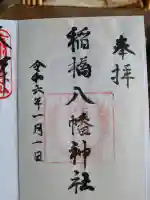 奉拝
稲橋八幡神社
令和六年一月一日